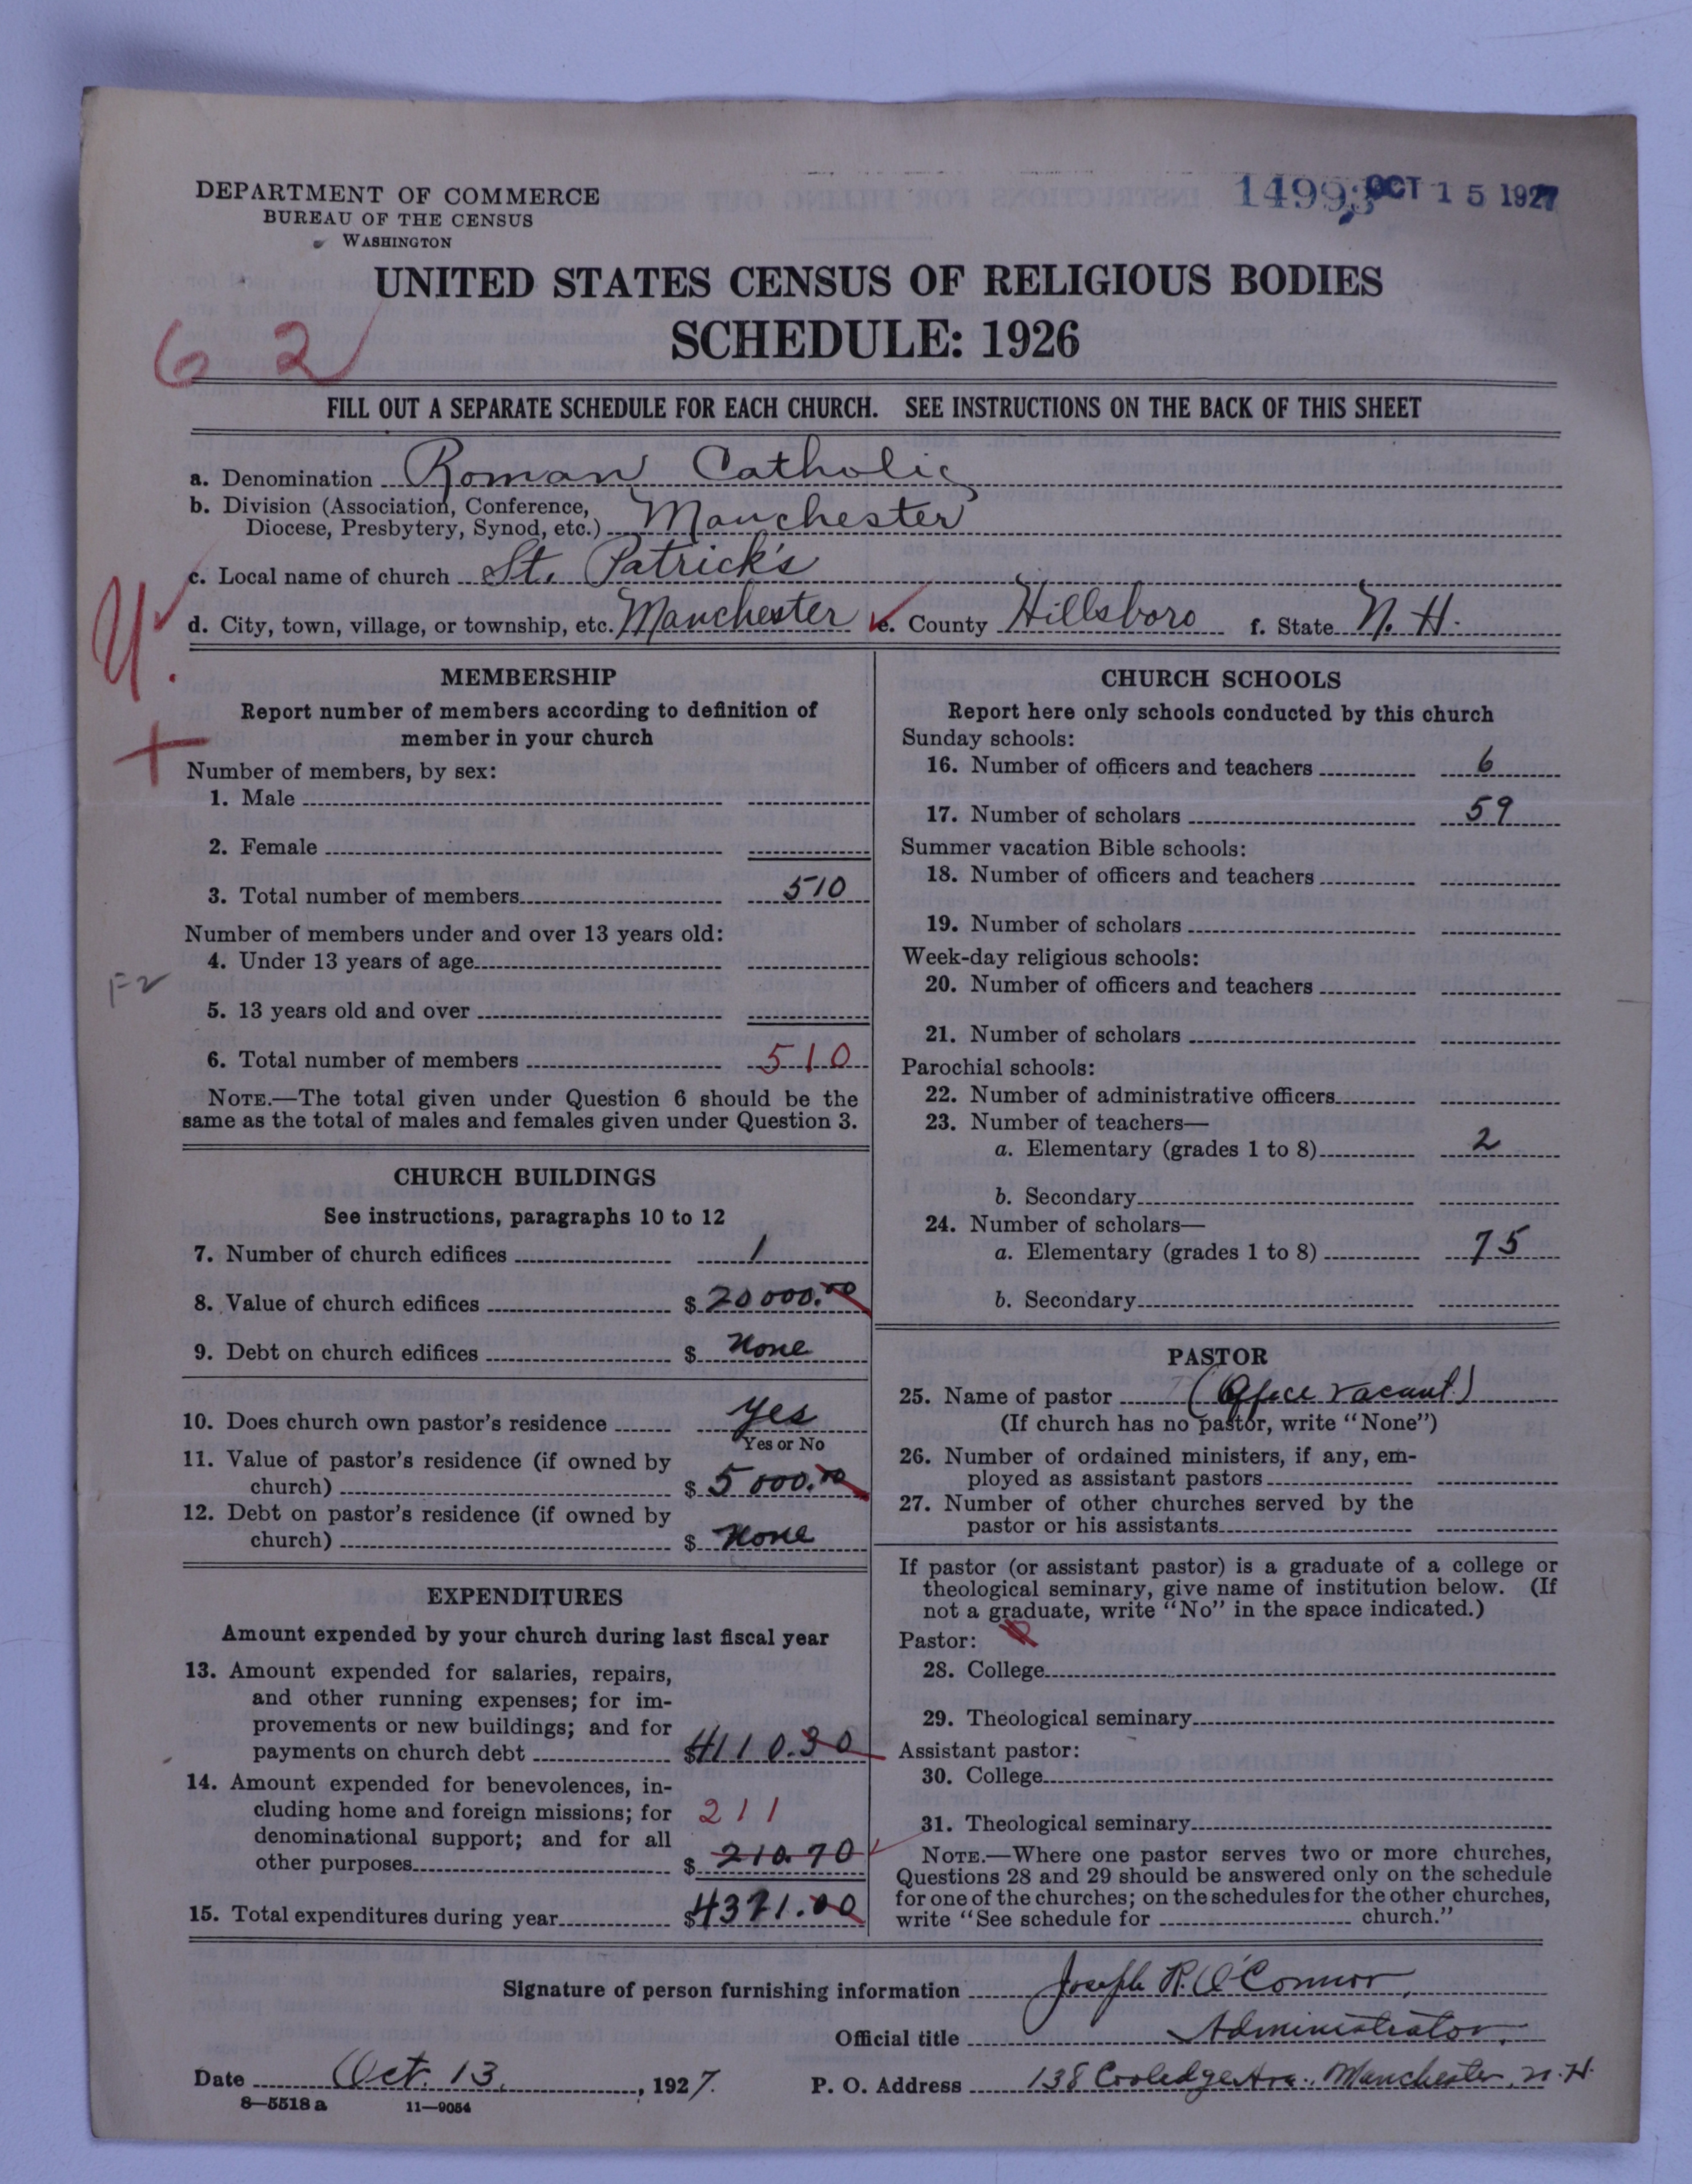 14993 OCT 15 1927
DEPARTMENT OF COMMERCE
BUREAU OF THE CENSUS
WASHINGTON
UNITED STATES CENSUS OF RELIGIOUS BODIES
SCHEDULE: 1926
62
FILL OUT A SEPARATE SCHEDULE FOR EACH CHURCH. SEE INSTRUCTIONS ON THE BACK OF THIS SHEET
a. Denomination Roman Catholic
b. Division (Association, Conference,
Diocese, Presbytery, Synod, etc.) Manchester
c. Local name of church St. Patrick's
d. City, town, village, or township, etc. Manchester e. County Hillsboro f. State N. H.
U.
+
MEMBERSHIP
Report number of members according to definition of
member in your church
Number of members, by sex:
1. Male
2. Female
3. Total number of members 510
Number of members under and over 13 years old:
4. Under 13 years of age
5. 13 years old and over
6. Total number of members 510
NOTE.—The total given under Question 6 should be the
same as the total of males and females given under Question 3.
CHURCH BUILDINGS
See instructions, paragraphs 10 to 12
7. Number of church edifices 1
8. Value of church edifices $ 20000.00
9. Debt on church edifices $ None
10. Does church own pastor's residence yes
Yes or No
11. Value of pastor's residence (if owned by
church) $ 5000.00
12. Debt on pastor's residence (if owned by
church) $ None
EXPENDITURES
Amount expended by your church during last fiscal year
13. Amount expended for salaries, repairs,
and other running expenses; for im-
provements or new buildings; and for
payments on church debt $4110.30
14. Amount expended for benevolences, in-
cluding home and foreign missions; for 211
denominational support; and for all
other purposes $ 210.70
15. Total expenditures during year $4321.00
CHURCH SCHOOLS
Report here only schools conducted by this church
Sunday schools:
16. Number of officers and teachers 6
17. Number of scholars 59
Summer vacation Bible schools:
18. Number of officers and teachers
19. Number of scholars
Week-day religious schools:
20. Number of officers and teachers
21. Number of scholars
Parochial schools:
22. Number of administrative officers
23. Number of teachers—
a. Elementary (grades 1 to 8) 2
b. Secondary
24. Number of scholars—
a. Elementary (grades 1 to 8) 75
b. Secondary
PASTOR
25. Name of pastor (Office vacant)
(If church has no pastor, write "None")
26. Number of ordained ministers, if any, em-
ployed as assistant pastors
27. Number of other churches served by the
pastor or his assistants
If pastor (or assistant pastor) is a graduate of a college or
theological seminary, give name of institution below. (If
not a graduate, write "No" in the space indicated.)
Pastor:
28. College
29. Theological seminary
Assistant pastor:
30. College
31. Theological seminary
NOTE.—Where one pastor serves two or more churches,
Questions 28 and 29 should be answered only on the schedule
for one of the churches; on the schedules for the other churches,
write "See schedule for church."
Signature of person furnishing information Joseph R. O'Connor,
Official title Administrator.
Date Oct. 13, 1927. P. O. Address 138 Cooledge Ave., Manchester, N. H.
8—5518 a 11—9054